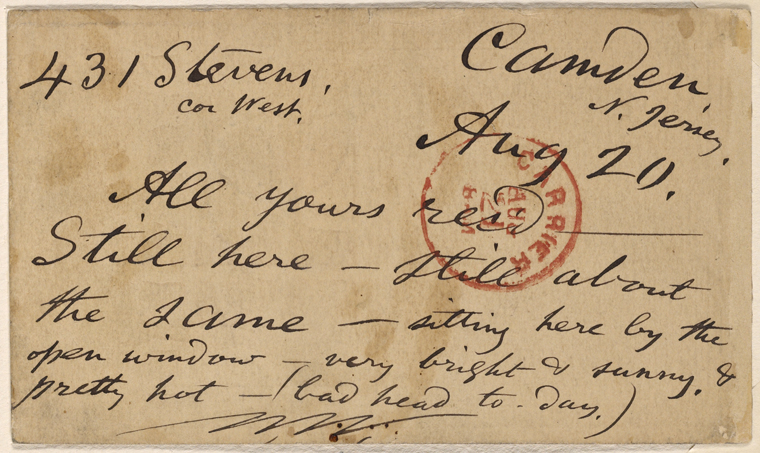 431 Stevens,
cor West.
Camden,
N. Jersey,
Aug 20.
All yours rec'd
Still here – still about
the same – sitting here by the
open window – very bright & sunny, &
pretty hot – (bad head to-day.)
W. W.
CARRIER
AUG